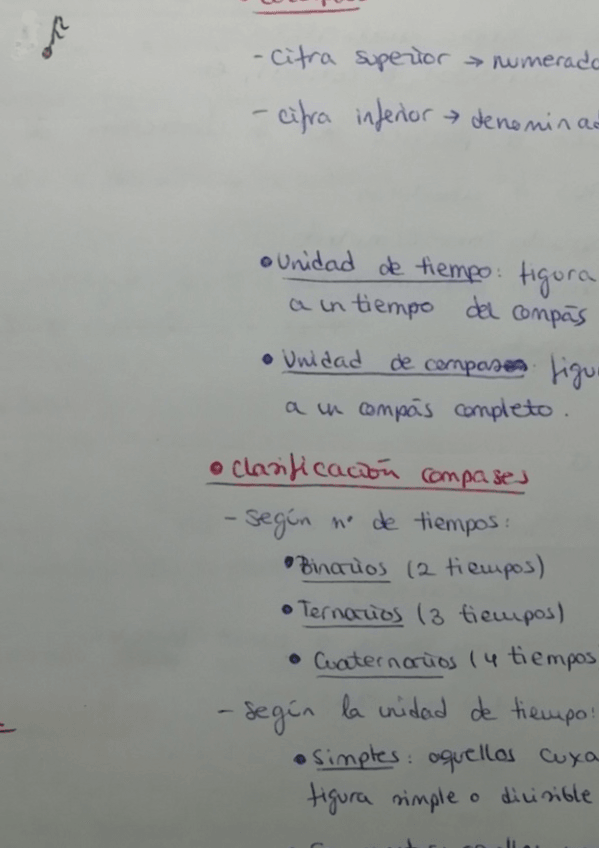 - cifra superior → numerado
- cifra inferior → denominad
• Unidad de tiempo: figura
a un tiempo del compás
• Unidad de compas: figu
a un compás completo.
• Clasificación compases
- Según nº de tiempos:
• Binarios (2 tiempos)
• Ternarios (3 tiempos)
• Cuaternarios (4 tiempos
- Según la unidad de tiempo:
• Simples: aquellos cuxa
figura simple o divisible